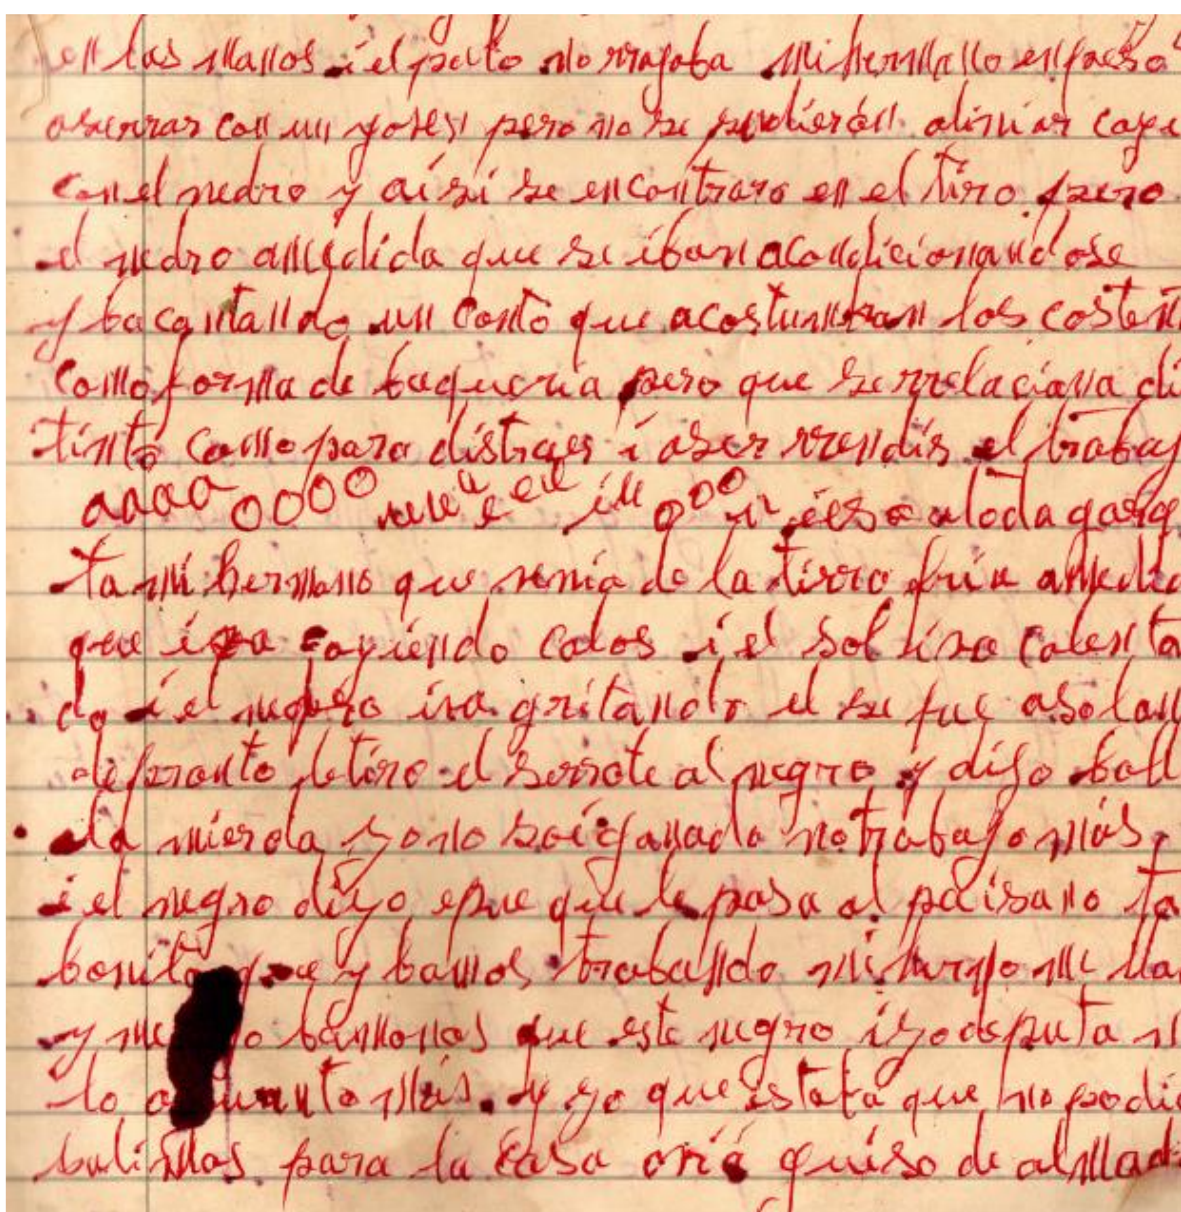 en las manos i el palo no rrajaba mi hermano enpeso
aserrar con un yoses pero no se pudierón aliniar coge
con el nedro y aisi se encontraro en el tiro pero
el nedro amedida que se iban acondicionandose
y ba cantando un canto que acostumbran los costeñ
como forma de baqueria pero que se rrelaciona di
tinto como para distraer i aser rrendir el trabaj
aaaa oooo eee ooo i eso a toda garga
ta mi hermano que venia de la tierro fria amedid
que iva cogiendo calos i el sol iva calenta
do i el negro iva gritando el se fue asolan
de pronto le tiro el serrote al negro y dijo ball
a la mierda yo no soi ganado no trabajo más
i el negro dijo epue que le pasa al paisano ta
bonito que y bamos trabajando mi
y me bamonos que este negro ijo de puta n
lo aguanto más. y yo que estaba que no podia
para la casa quiso de